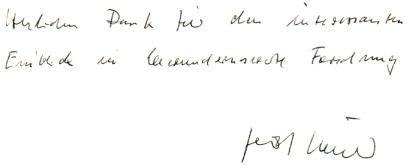 Herzlichen Dank für den interessanten
Einblick in bewundernswerte Forschung